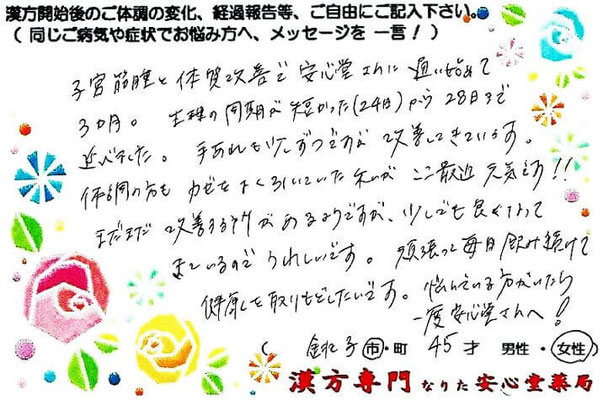 漢方開始後のご体調の変化、経過報告等、ご自由にご記入下さい。
( 同じご病気や症状でお悩み方へ、メッセージを 一言! )
子宮筋腫と体質改善で安心堂さんに通い始めて
3カ月。生理の周期が短かった(24日)から28日まで
延びました。手あれも少しずつですが改善してきています。
体調の方も カゼをよく引いていた私が ここ最近 元気です!!
まだまだ 改善する所があるようですが、少しでも良くなって
きているので うれしいです。頑張って毎日飲み続けて
健康を取りもどしたいです。悩んでいる方がいたら
一度安心堂さんへ!
( 市・町 45才 男性・女性 )
漢方専門 なりた 安心堂薬局